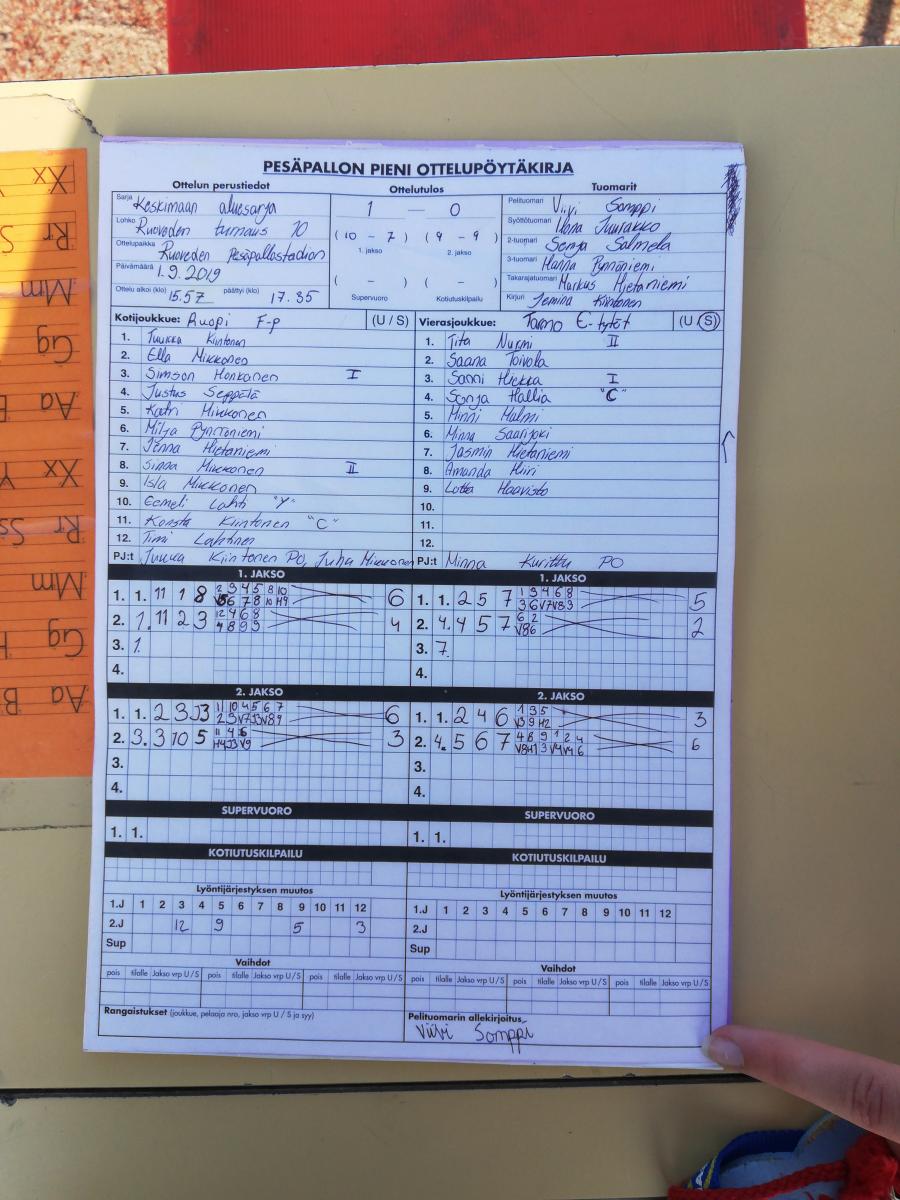 PESÄPALLON PIENI OTTELUPÖYTÄKIRJA
Ottelun perustiedot
Ottelutulos
Tuomarit
Sarja Keskimaan aluesarja
Lohko Ruoveden turnaus 10
Ottelupaikka Ruoveden Pesäpallostadion
Päivämäärä 1.9.2019
Ottelu alkoi (klo) 15.57 päättyi (klo) 17.35
1 — 0
(10 - 7) (9 - 9)
1. jakso 2. jakso
( - ) ( - )
Supervuoro Kotiutuskilpailu
Pelituomari Viivi Somppi
Syöttötuomari Ilona Juurakko
2-tuomari Senja Salmela
3-tuomari Hanna Pynnöniemi
Takarajatuomari Markus Hietaniemi
Kirjuri Jemina Kiintonen
Kotijoukkue: Ruopi F-p (U / S)
1. Tuukka Kiintonen
2. Ella Mikkonen
3. Simson Honkanen I
4. Justus Seppälä
5. Katri Mikkonen
6. Milja Pynnöniemi
7. Jenna Hietaniemi
8. Sinna Mikkonen II
9. Isla Mikkonen
10. Eemeli Lahti "Y"
11. Konsta Kiintonen "C"
12. Timi Lahtinen
PJ:t Jukka Kiintonen PO, Juha Mikkonen
Vierasjoukkue: Tarmo E-tytöt (U / S)
1. Tita Nurmi II
2. Saana Toivola
3. Sanni Hiekka I
4. Senja Hallia "C"
5. Minni Malmi
6. Minna Saarijoki
7. Jasmin Hietaniemi
8. Amanda Hiiri
9. Lotta Haavisto
10.
11.
12.
PJ:t Minna Kurittu PO
1. JAKSO
1. 1. 11 1 8 2 3 4 5 8 10 6
2. 1. 11 2 3 4
3. 1.
4.
1. JAKSO
1. 1. 2 5 7 1 3 4 6 8 5
2. 4. 4 5 7 6 2 2
3. 7.
4.
2. JAKSO
1. 1. 2 3 J3 11 10 4 5 6 7 6
2. 3. 3 10 5 3
3.
4.
2. JAKSO
1. 1. 2 4 6 1 3 5 3
2. 4. 5 6 7 4 8 9 1 2 4 6
3.
4.
SUPERVUORO
1. 1.
SUPERVUORO
1. 1.
KOTIUTUSKILPAILU
KOTIUTUSKILPAILU
Lyöntijärjestyksen muutos
1.J 1 2 3 4 5 6 7 8 9 10 11 12
2.J 12 9 5 3
Sup
Lyöntijärjestyksen muutos
1.J 1 2 3 4 5 6 7 8 9 10 11 12
2.J
Sup
Vaihdot
pois tilalle Jakso vrp U/S pois tilalle Jakso vrp U/S pois tilalle Jakso vrp U/S
Vaihdot
pois tilalle Jakso vrp U/S pois tilalle Jakso vrp U/S pois tilalle Jakso vrp U/S
Rangaistukset (joukkue, pelaaja nro, jakso vrp U / S ja syy)
Pelituomarin allekirjoitus
Viivi Somppi
Xx
Rr Ss
Mm
Gg
Aa B
Xx Y
Rr Ss
Mm
Gg H
Aa B